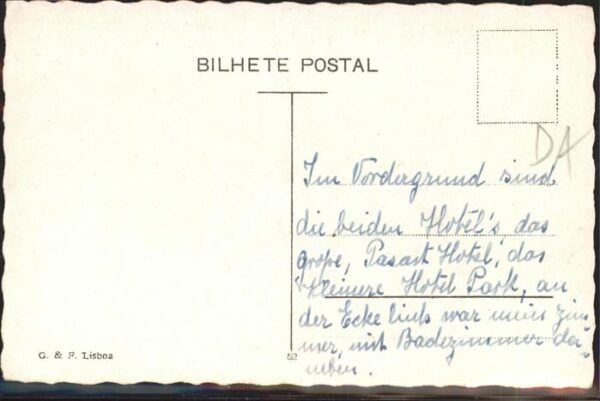 BILHETE POSTAL
DA
Im Vordergrund sind
die beiden Hotél's, das
große, Hotel, das
kleinere Hotel Park, an
der Ecke links war mein Zim-
mer, mit Badezimmer da-
neben.
G. & F. Lisboa
52